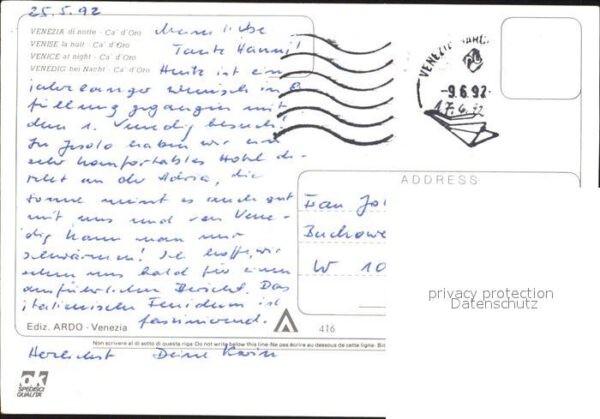 25.5.92
VENEZIA di notte - Ca' d'Oro
VENISE la nuit - Ca' d'Oro
VENICE at night - Ca' d'Oro
VENEDIG bei Nacht - Ca' d'Oro
Meine liebe
Tante Hanny!
Heute ist ein
jahrelanger Wunsch in Er
füllung gegangen mit
dem 1. Venedig besuch!
In Jesolo haben wir ein
sehr komfortables Hotel di-
rekt an der Adria, die
Sonne meint es auch gut
mit uns und von Vene-
dig kann man nur
schwärmen! Ich hoffe, wir
sehen uns bald für einen
ausführlichen Bericht. Das
italienische Venedig ist
faszinierend.
Herzlichst Deine Karin
VENEZIA
-9.6.92-
17.6.92
ADDRESS
Frau
Buchowe
W 10
privacy protection
Datenschutz
Ediz. ARDO - Venezia
416
Non scrivere al di sotto di questa riga - Do not write below this line - Ne pas écrire au dessous de cette ligne - Bit
ok
SPEDISCI
QUALITÀ